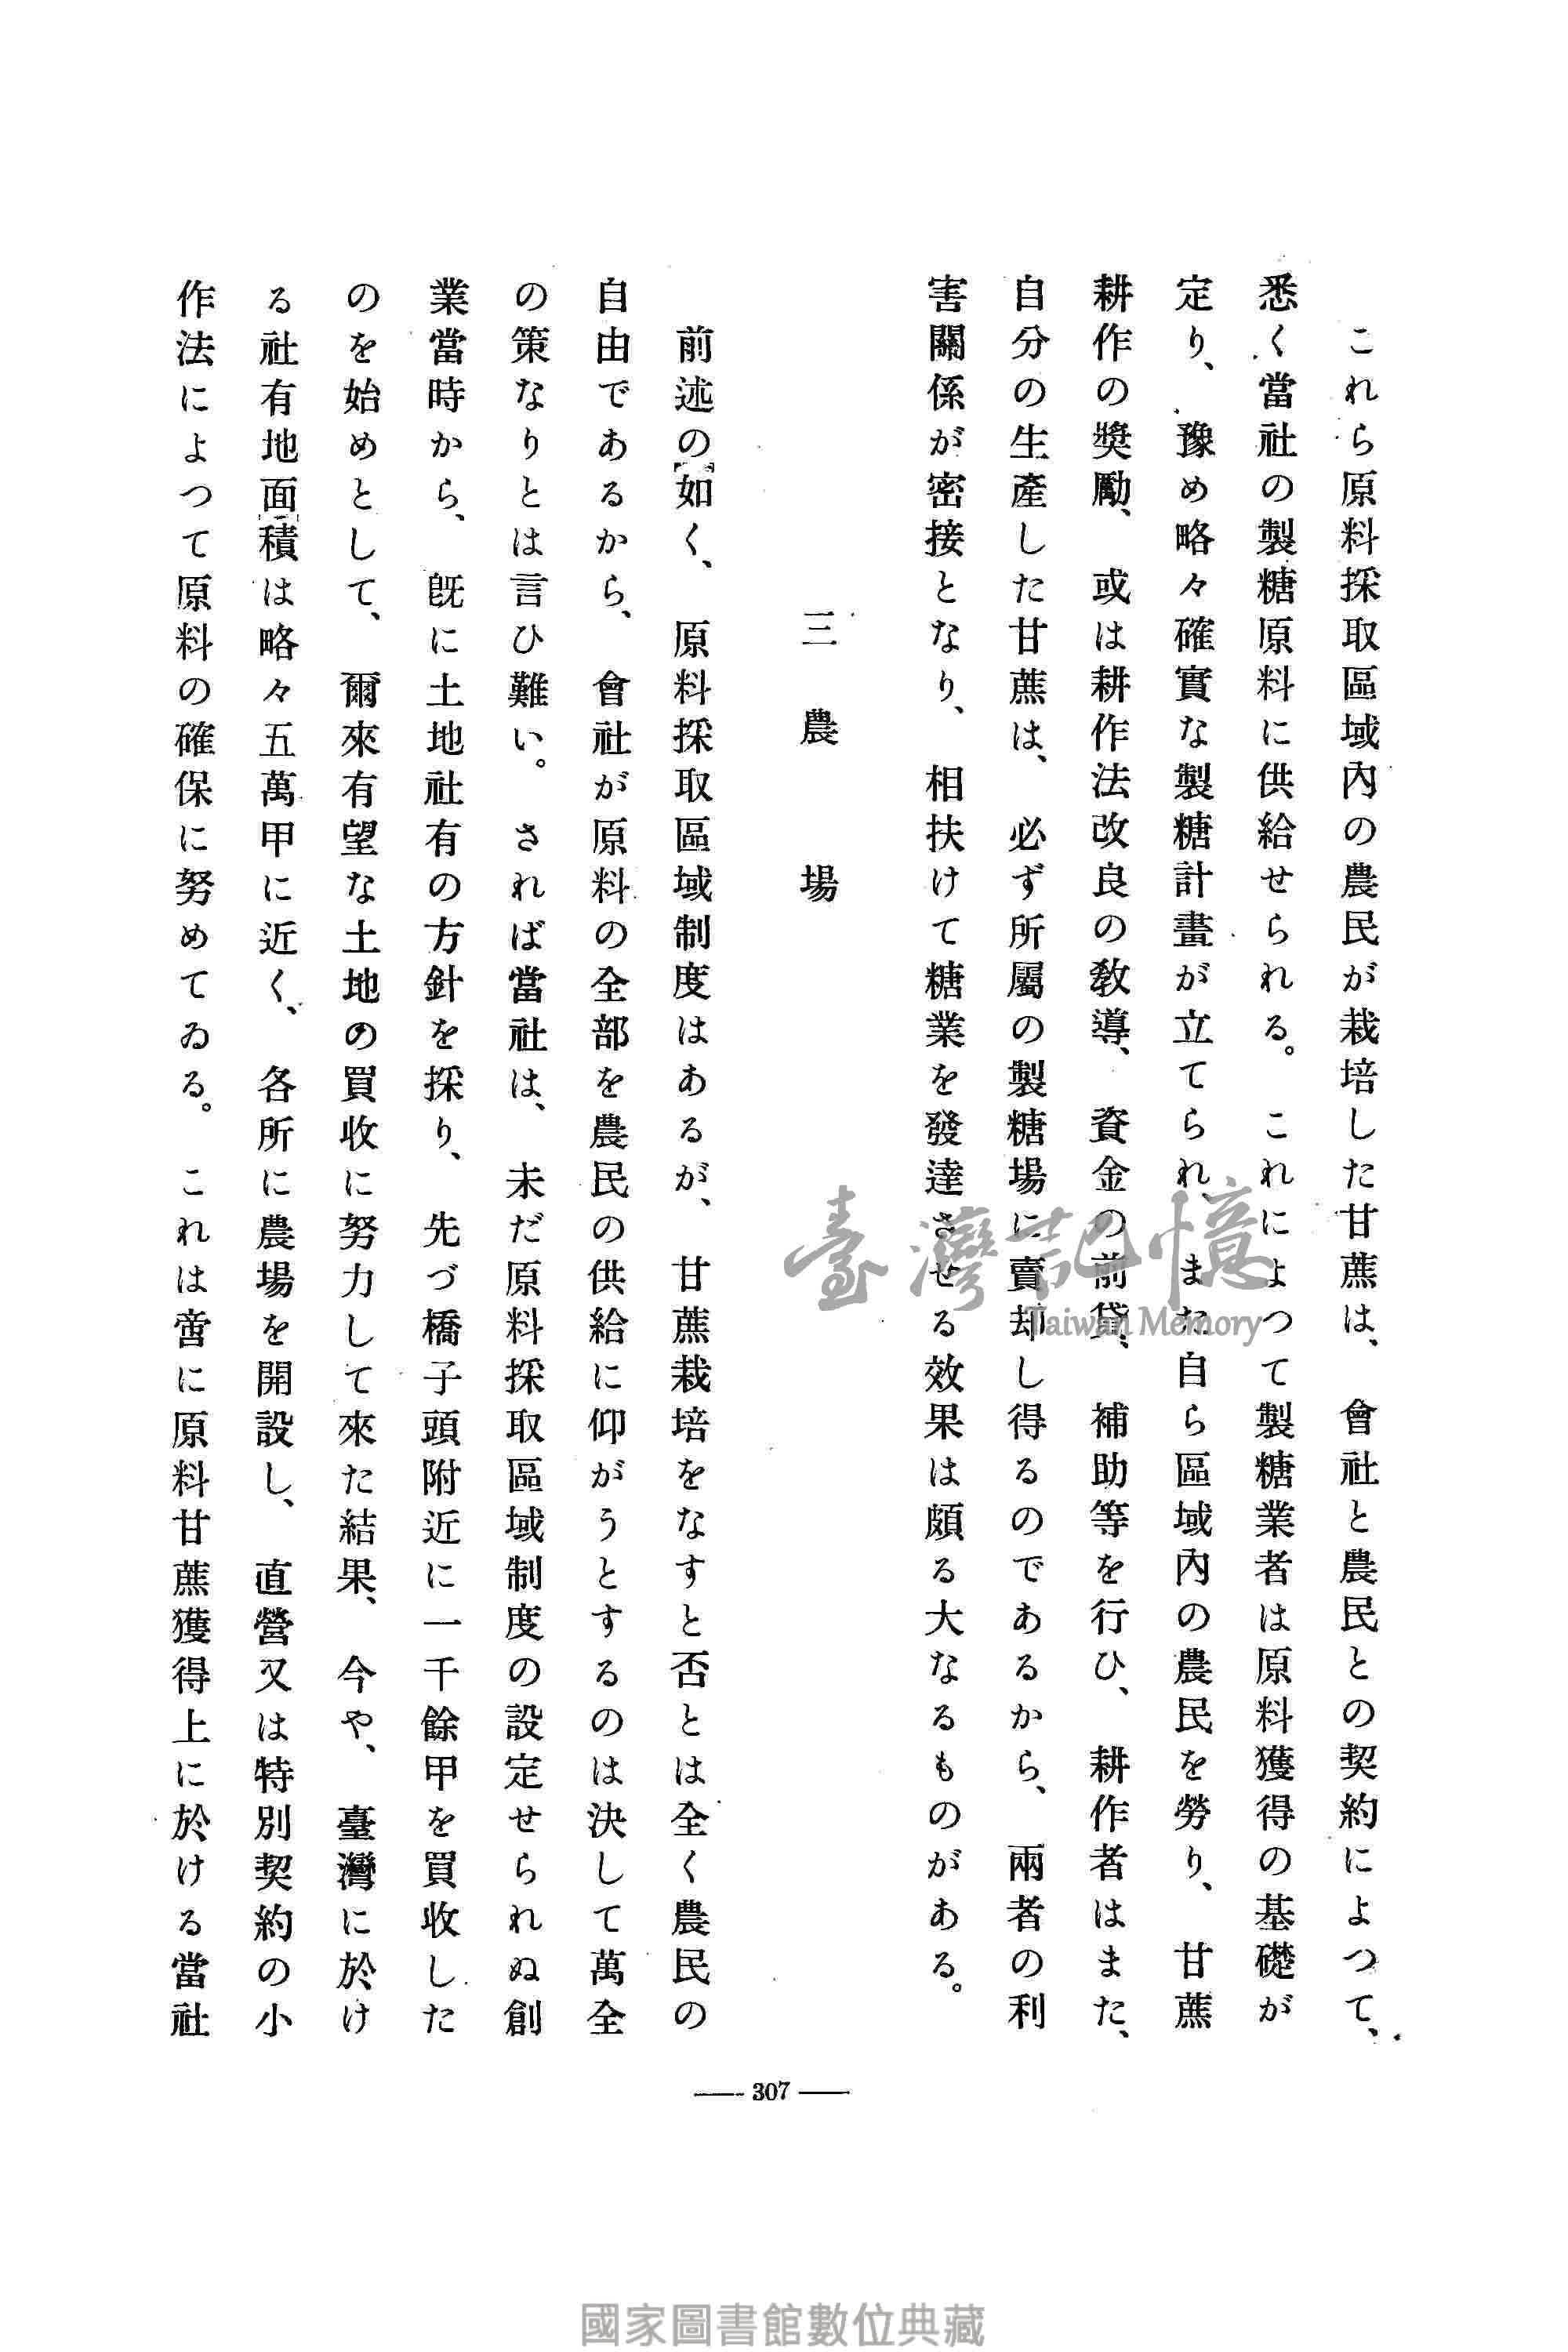 これら原料採取區域內の農民が栽培した甘蔗は、會社と農民との契約によつて、
悉く當社の製糖原料に供給せられる。これによつて製糖業者は原料獲得の基礎が
定り、豫め略々確實な製糖計畫が立てられ、また自ら區域內の農民を勞り、甘蔗
耕作の獎勵、或は耕作法改良の敎導、資金の前貸、補助等を行ひ、耕作者はまた、
自分の生產した甘蔗は、必ず所屬の製糖場に賣却し得るのであるから、兩者の利
害關係が密接となり、相扶けて糖業を發達させる效果は頗る大なるものがある。
三農場
前述の如く、原料採取區域制度はあるが、甘蔗栽培をなすと否とは全く農民の
自由であるから、會社が原料の全部を農民の供給に仰がうとするのは決して萬全
の策なりとは言ひ難い。されば當社は、未だ原料採取區域制度の設定せられぬ創
業當時から、既に土地社有の方針を採り、先づ橋子頭附近に一千餘甲を買收した
のを始めとして、爾來有望な土地の買收に努力して來た結果、今や、臺灣に於け
る社有地面積は略々五萬甲に近く、各所に農場を開設し、直營又は特別契約の小
作法によつて原料の確保に努めてゐる。これは啻に原料甘蔗獲得上に於ける當社
307
臺灣記憶
Taiwan Memory
國家圖書館數位典藏